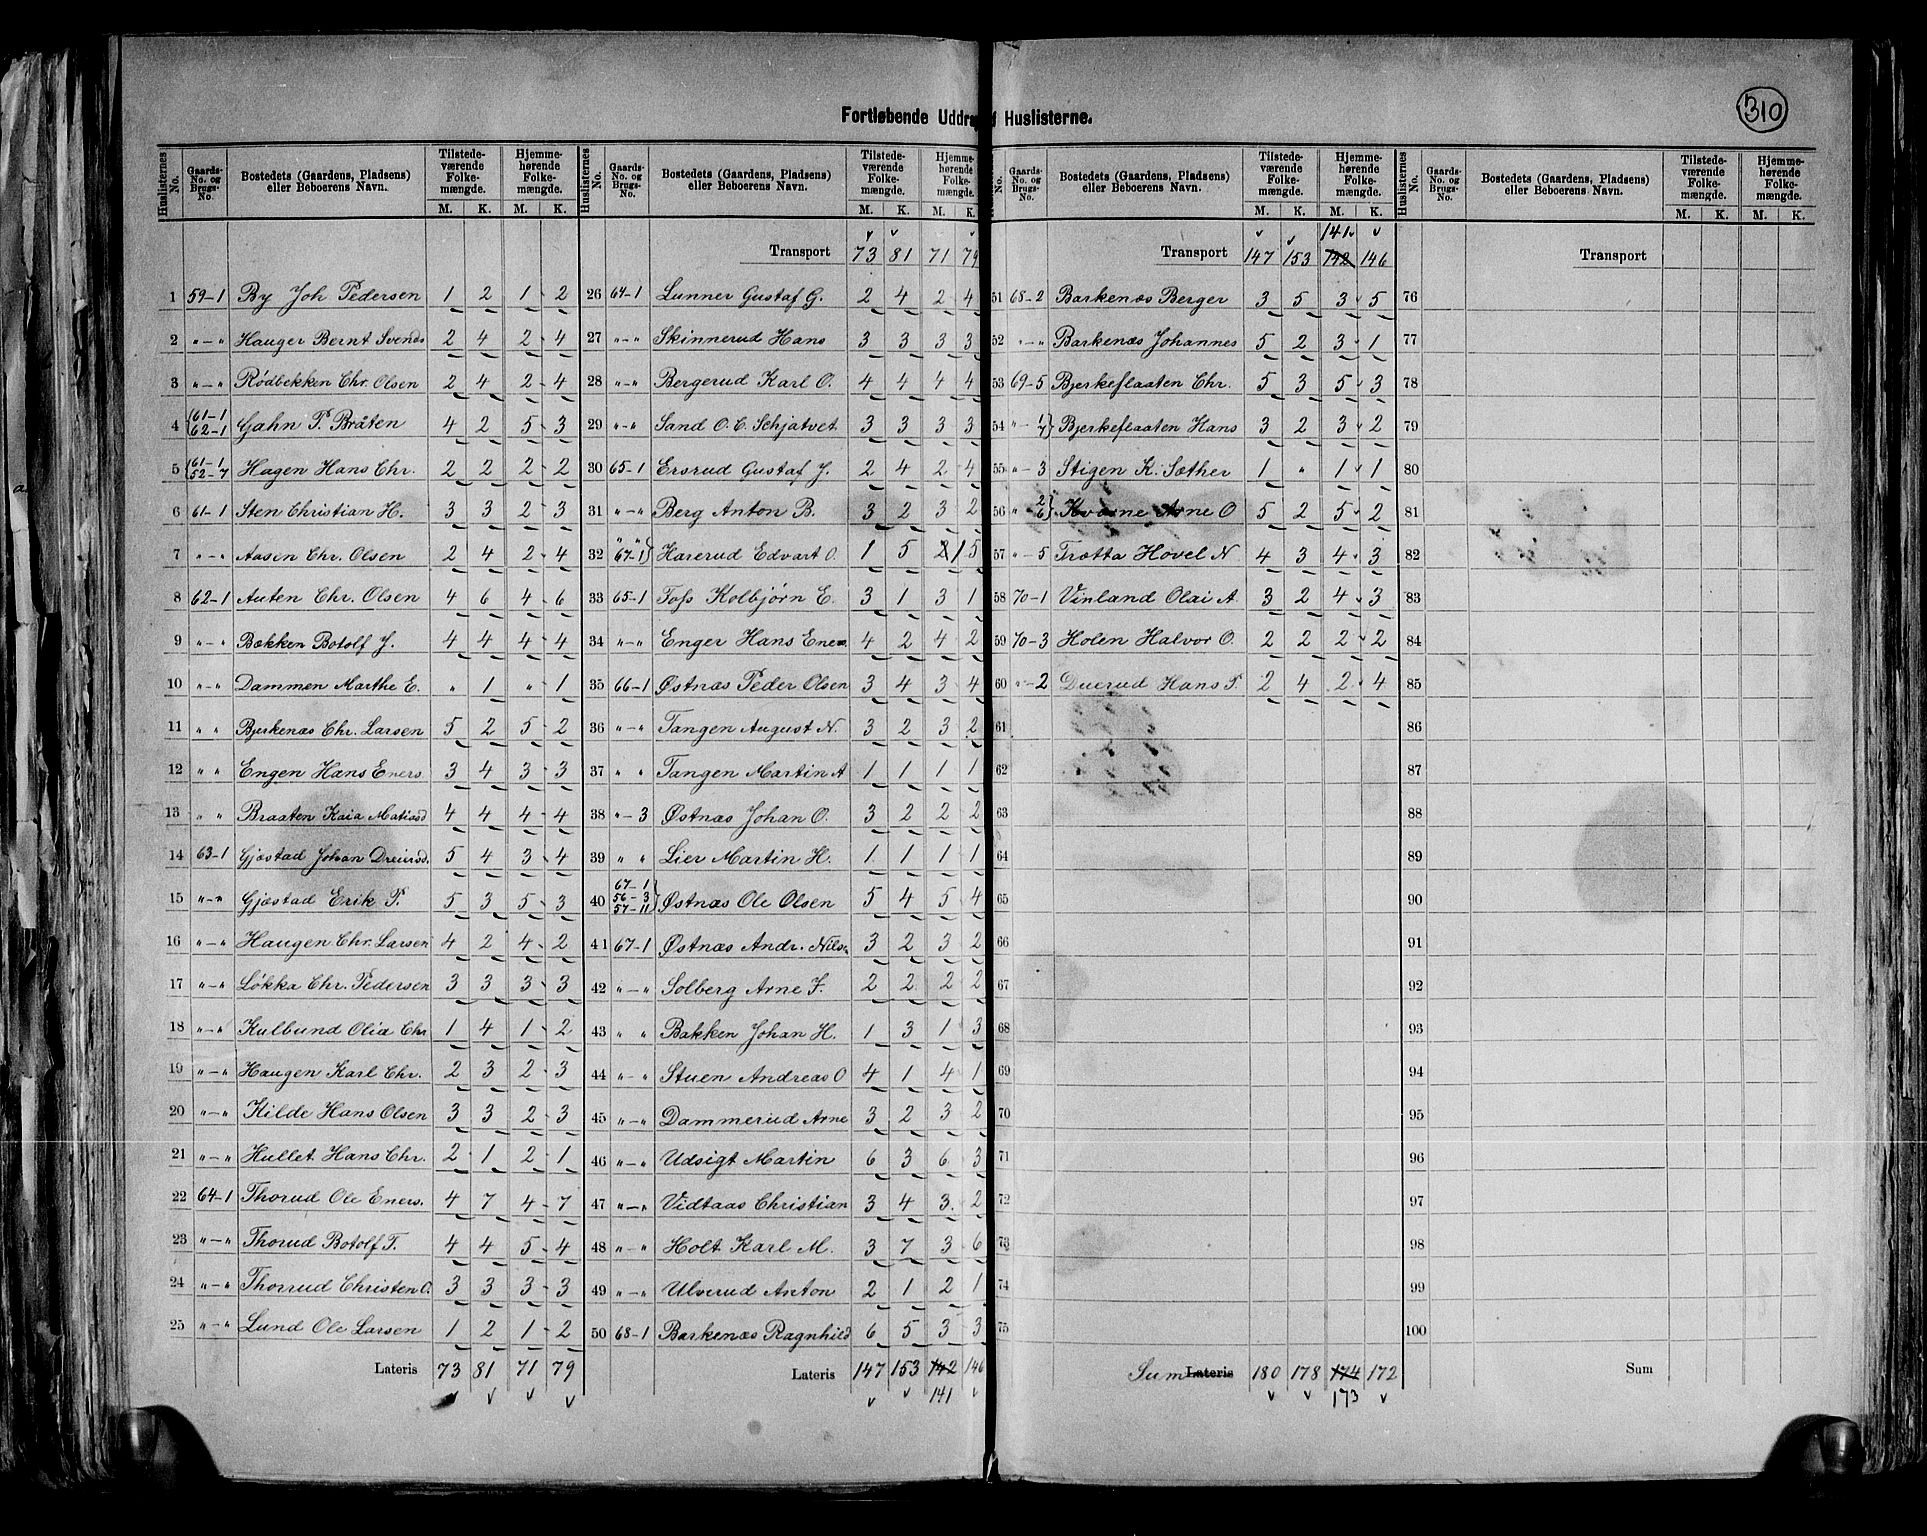 310
Fortløbende Uddra f Huslisterne.
Huslisternes No. | Gaards-No. og Brugs-No. | Bostedets (Gaardens, Pladsens) eller Beboerens Navn. | Tilstede-værende Folke-mængde. M. K. | Hjemme-hørende Folke-mængde. M. K.
1 59-1 By Joh Pedersen 1 2 1 2
2 „-„ Hauger Bernt Svends 2 4 2 4
3 „-„ Rödbekken Chr. Olsen 2 4 2 4
4 61-1 62-1 Gahn P. Bråten 4 2 5 3
5 61-1 52-7 Hagen Hans Chr. 2 2 2 2
6 61-1 Sten Christian H. 3 3 2 3
7 „-„ Aasen Chr. Olsen 2 4 2 4
8 62-1 Auten Chr. Olsen 4 6 4 6
9 „-„ Bækken Botolf J. 4 4 4 4
10 „-„ Dammen Marthe E. „ 1 „ 1
11 „ „ Bjerkenæs Chr. Larsen 5 2 5 2
12 „ „ Engen Hans Eners 3 4 3 3
13 „ „ Braaten Kaia Matiasd 4 4 4 4
14 63-1 Gjæstad Johan 5 4 3 4
15 „-„ Gjæstad Erik P. 5 3 5 3
16 „-„ Haugen Chr. Larsen 4 2 4 2
17 „-„ Løkka Chr. Pedersen 3 3 3 3
18 „-„ Kulbund Olia Chr 1 4 1 2
19 „-„ Haugen Karl Chr. 2 3 2 3
20 „-„ Kilde Hans Olsen 3 3 2 3
21 „-„ Hullet Hans Chr. 2 1 2 1
22 64-1 Thorud Ole Eners. 4 7 4 7
23 „-„ Thorud Botolf T. 4 4 5 4
24 „-„ Thorrud Christen O. 3 3 3 3
25 „-„ Lund Ole Larsen 1 2 1 2
Lateris 73 81 71 79
Huslisternes No. | Gaards-No. og Brugs-No. | Bostedets (Gaardens, Pladsens) eller Beboerens Navn. | Tilstede-værende Folke-mængde. M. K. | Hjemme-hørende Folke-mængde. M. K.
Transport 73 81 71 79
26 64-1 Lunner Gustaf G. 2 4 2 4
27 „-„ Skinnerud Hans 3 3 3 3
28 „-„ Bergerud Karl O. 4 4 4 4
29 „-„ Sand O. C. Schjatvet 3 3 3 3
30 65-1 Ersrud Gustaf J. 2 4 2 4
31 „-„ Berg Anton B. 3 2 3 2
32 „ „ 67-1 Harerud Edvart O. 1 5 2 1 5
33 65-1 Foss Kolbjørn E. 3 1 3 1
34 „-„ Enger Hans Eners. 4 2 4 2
35 66-1 Østnæs Peder Olsen 3 4 3 4
36 „-„ Tangen August N. 3 2 3 2
37 „ „ Tangen Martin A 1 1 1 1
38 „-3 Østnæs Johan O. 3 2 2 2
39 „ „ Lier Martin H. 1 1 1 1
40 67-1 56-3 57-11 Østnæs Ole Olsen 5 4 5 4
41 67-1 Østnæs Andr. Nils. 3 2 3 2
42 „-„ Solberg Arne F. 2 2 2 2
43 „ „ Bakken Johan H. 1 3 1 3
44 „-„ Stuen Andreas O 4 1 4 1
45 „-„ Dammerud Arne 3 2 3 2
46 „-„ Udsigt Martin 6 3 6 3
47 „-„ Vidtaas Christian 3 4 3 2
48 „-„ Holt Karl M. 3 7 3 6
49 „-„ Ulverud Anton 2 1 2 1
50 68-1 Barkenæs Ragnhild 6 5 3 3
Lateris 147 153 142 146
141
No. | Gaards-No. og Brugs-No. | Bostedets (Gaardens, Pladsens) eller Beboerens Navn. | Tilstede-værende Folke-mængde. M. K. | Hjemme-hørende Folke-mængde. M. K.
141
Transport 147 153 142 146
51 68-2 Barkenæs Berger 3 5 3 5
52 „-„ Barkenæs Johannes 5 2 3 1
53 69-5 Bjerkeflaaten Chr. 5 3 5 3
54 „-1 7 Bjerkeflaaten Hans 3 2 3 2
55 „-3 Stigen K. Sæther 1 „ 1 1
56 „ 2 6 Kværne Arne O 5 2 5 2
57 „-5 Trætta Hovel N 4 3 4 3
58 70-1 Vinland Olai A. 3 2 4 3
59 70-3 Holen Halvor O. 2 2 2 2
60 „-2 Duerud Hans P. 2 4 2 4
61
62
63
64
65
66
67
68
69
70
71
72
73
74
75
Sum Lateris 180 178 174 172
173
Huslisternes No. | Gaards-No. og Brugs-No. | Bostedets (Gaardens, Pladsens) eller Beboerens Navn. | Tilstede-værende Folke-mængde. M. K. | Hjemme-hørende Folke-mængde. M. K.
Transport
76
77
78
79
80
81
82
83
84
85
86
87
88
89
90
91
92
93
94
95
96
97
98
99
100
Sum